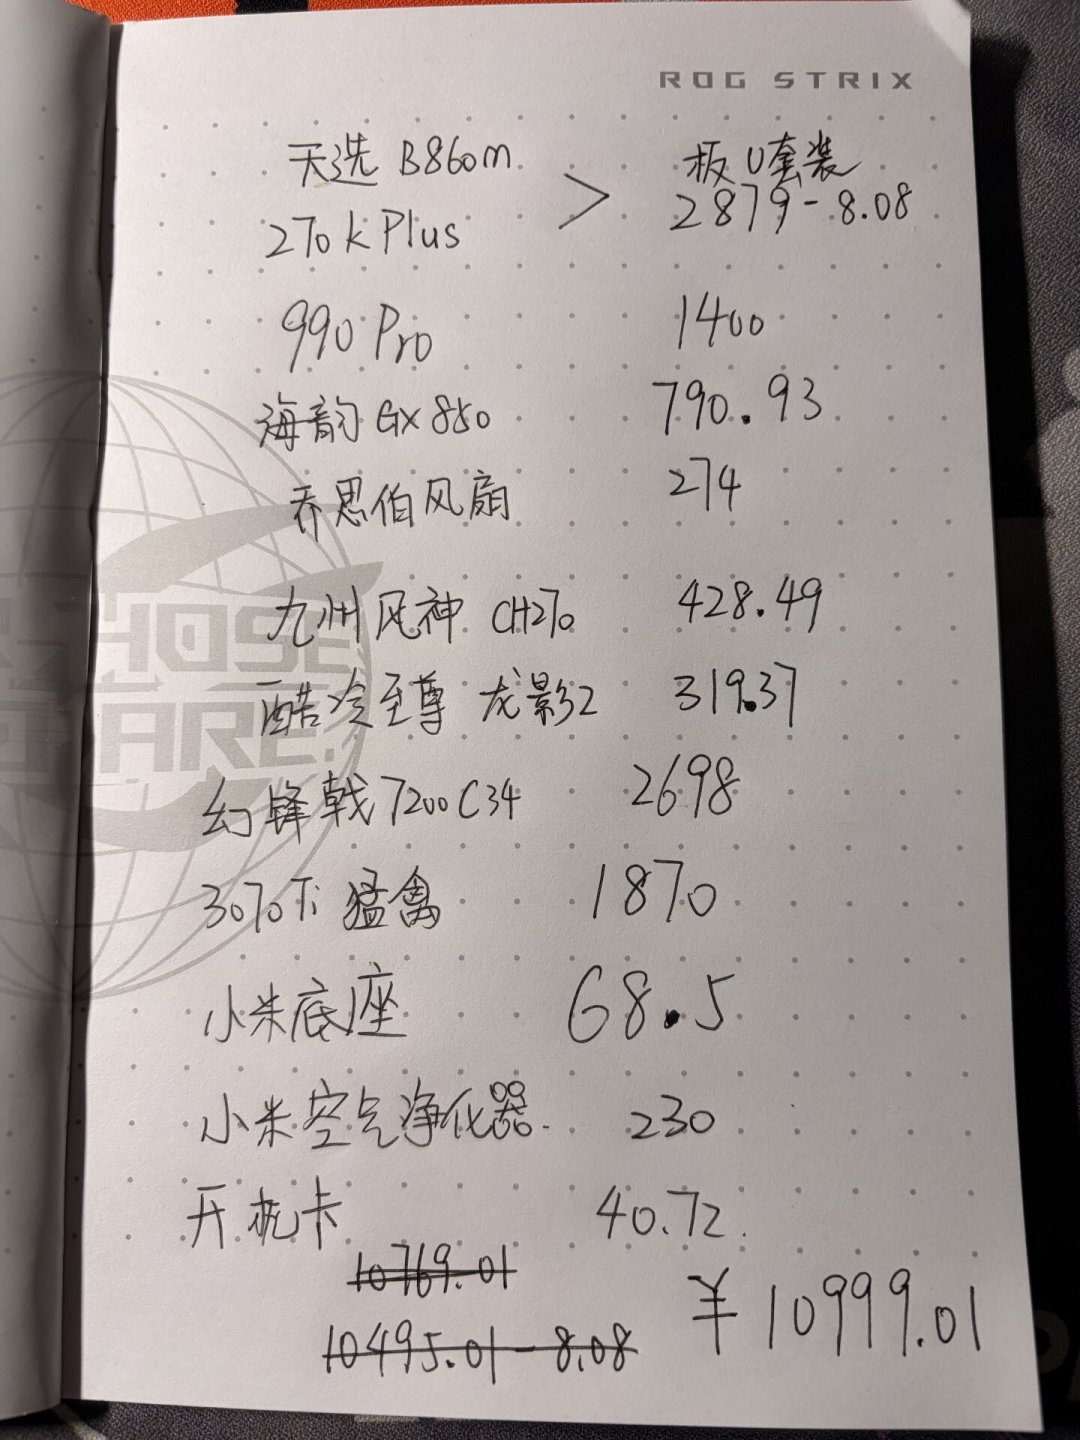 ROG STRIX
天选 B860m
270k Plus
>
板U套装
2879-8.08
990 Pro 1400
海韵 GX850 790.93
乔思伯风扇 274
九州风神 CH270 428.49
酷冷至尊 龙影2 319.37
幻锋戟7200C34 2698
3070Ti 猛禽 1870
小米底座 68.5
小米空气净化器 230
开机卡 40.72
10769.01
10495.01-8.08
¥10999.01